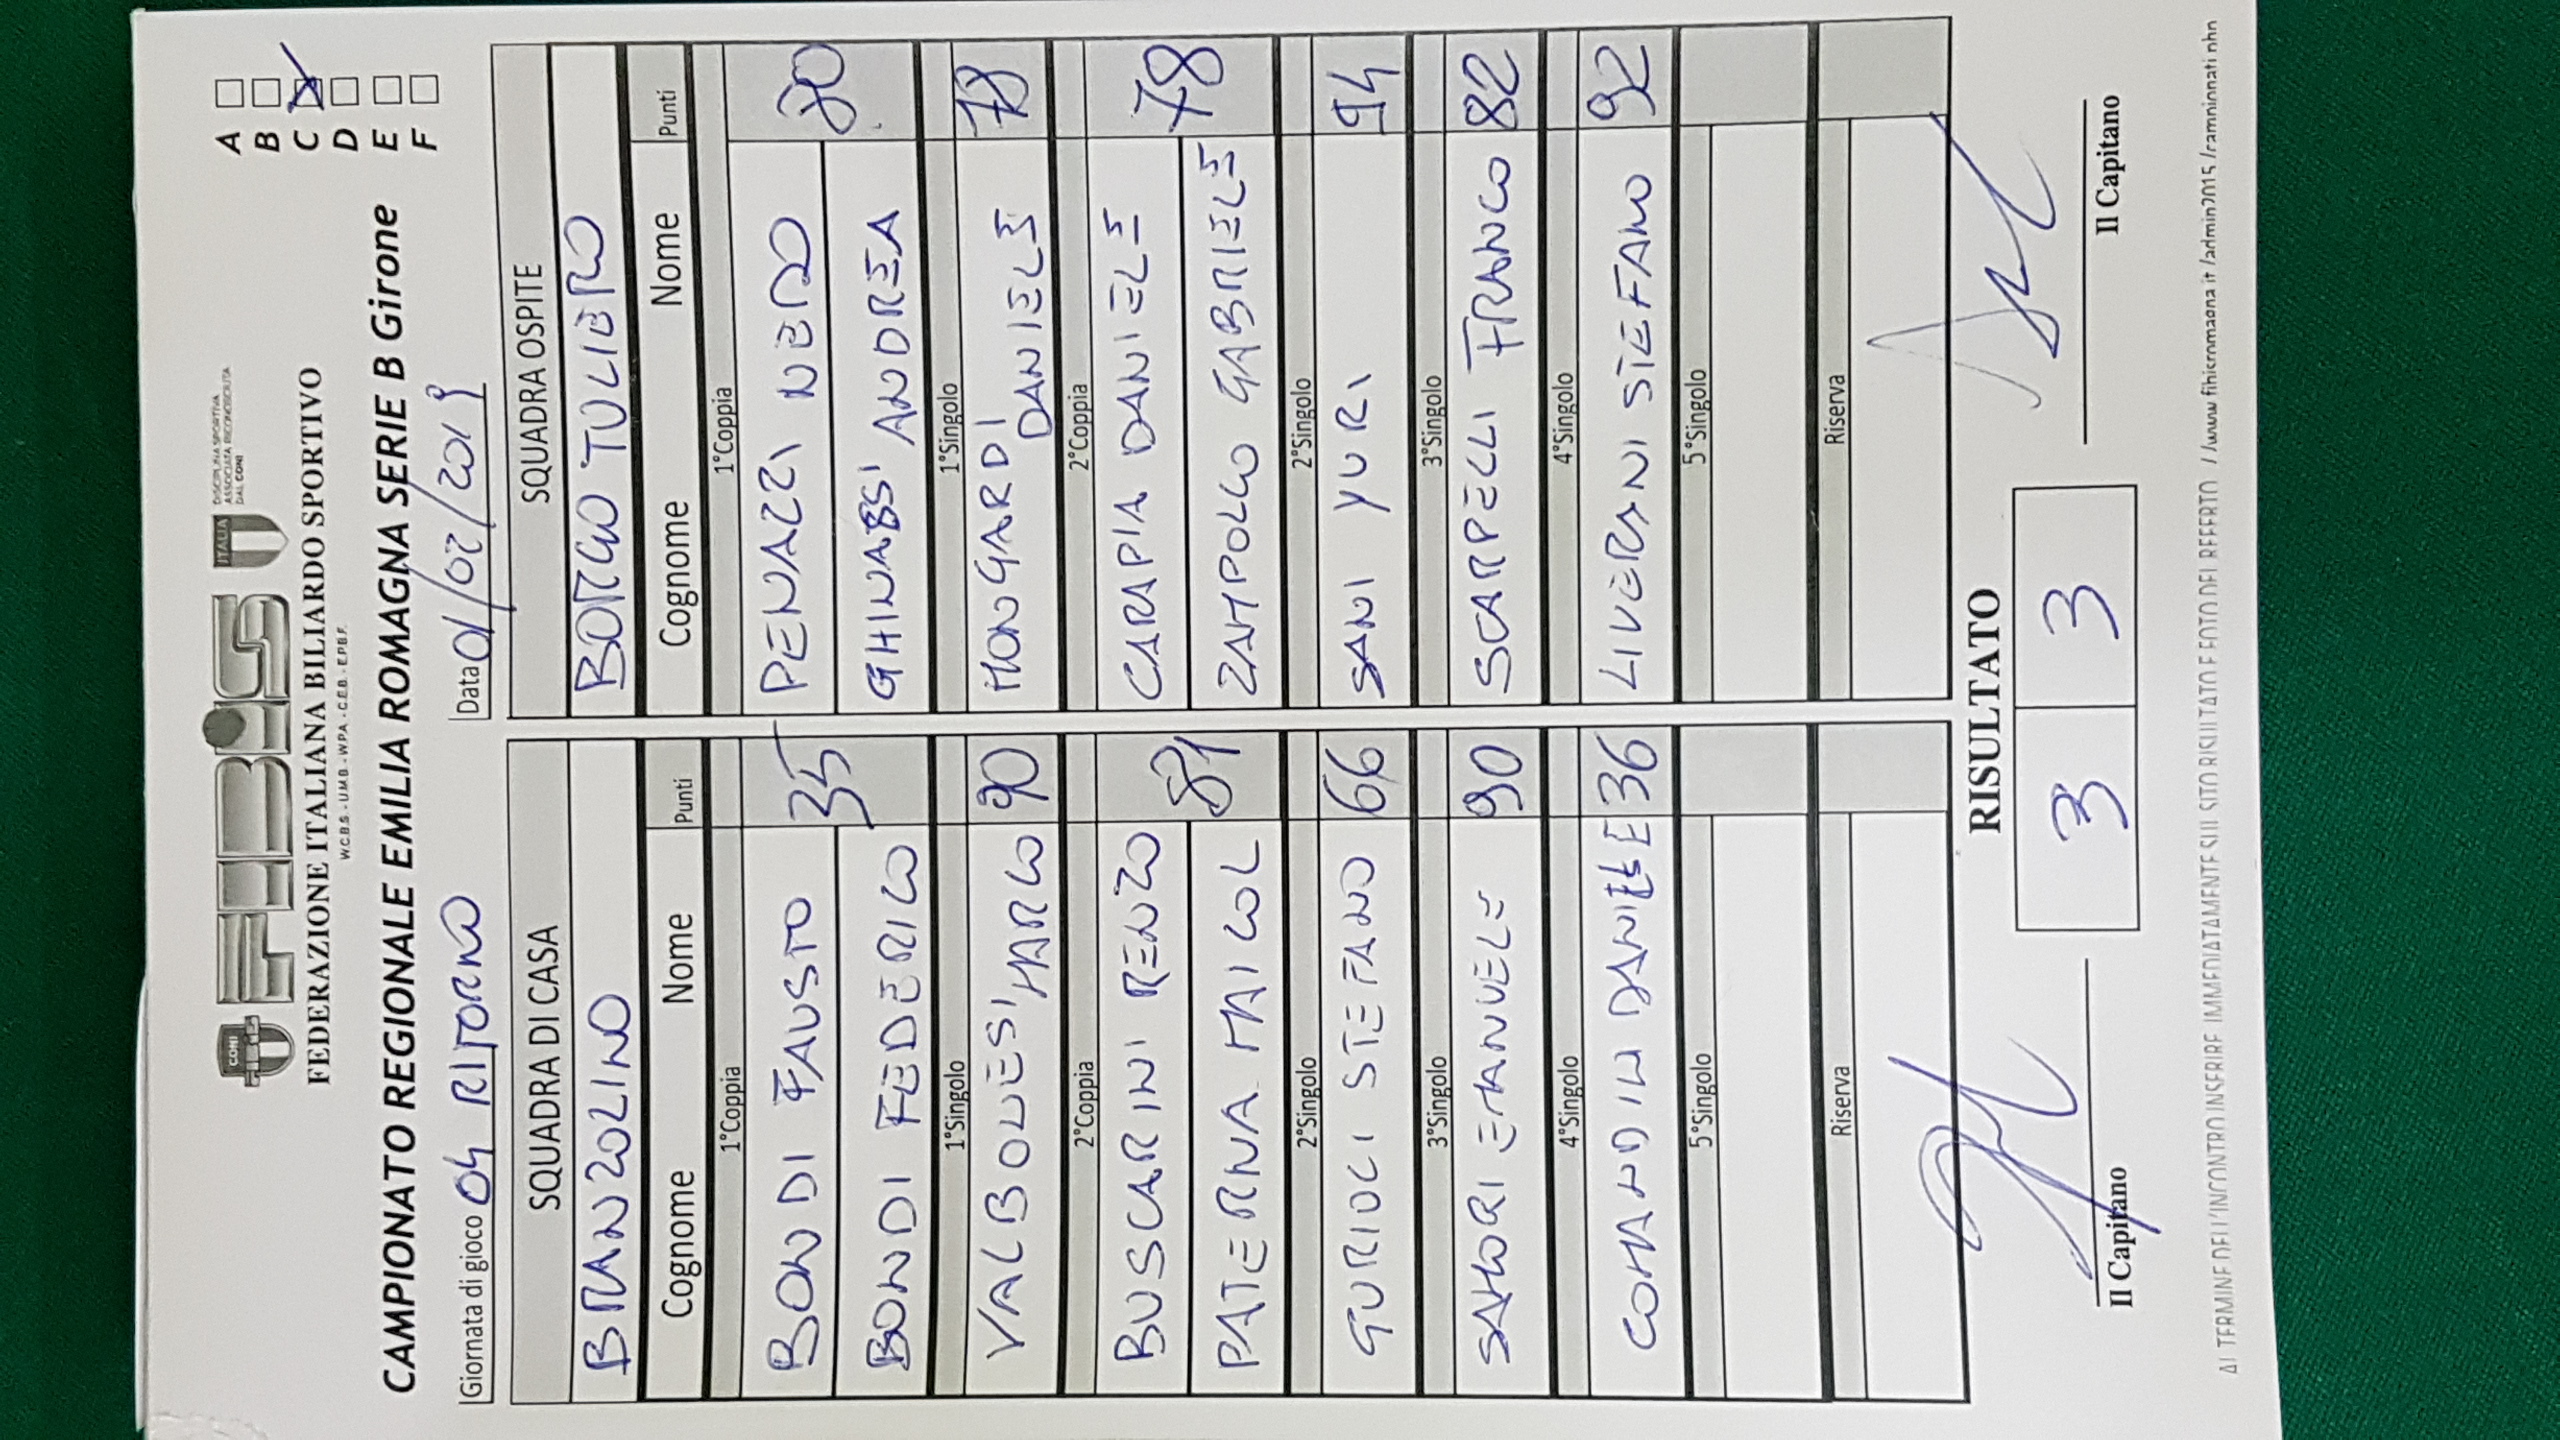 CONI
FIBIS
ITALIA
DISCIPLINA SPORTIVA
ASSOCIATA RICONOSCIUTA
DAL CONI
FEDERAZIONE ITALIANA BILIARDO SPORTIVO
W.C.B.S. - U.M.B. - W.P.A. - C.E.B. - E.P.B.F.
CAMPIONATO REGIONALE EMILIA ROMAGNA SERIE B Girone
A
B
C
D
E
F
Giornata di gioco 04 RITORNO Data 01/02/2019
SQUADRA DI CASA SQUADRA OSPITE
BRANZOLINO BORGO TULIERO
Cognome Nome Punti Cognome Nome Punti
1°Coppia 1°Coppia
BONDI FAUSTO 35 PENAZZI NERO 80
BONDI FEDERICO GHINASSI ANDREA
1°Singolo 1°Singolo
VALBONESI MARCO 90 MONGARDI DANIELE 78
2°Coppia 2°Coppia
BUSCARINI RENZO 81 CARAPIA DANIELE 78
PATERNA MAICOL ZAMPOLLO GABRIELE
2°Singolo 2°Singolo
GURIOLI STEFANO 66 SANI YURI 94
3°Singolo 3°Singolo
SAMORI EMANUELE 90 SCARPELLI FRANCO 82
4°Singolo 4°Singolo
COMANDINI DANIELE 36 LIVERANI STEFANO 92
5°Singolo 5°Singolo
Riserva Riserva
RISULTATO
3 3
Il Capitano Il Capitano
AL TERMINE DELL'INCONTRO INSERIRE IMMEDIATAMENTE SUL SITO RISULTATO E FOTO DEL REFERTO